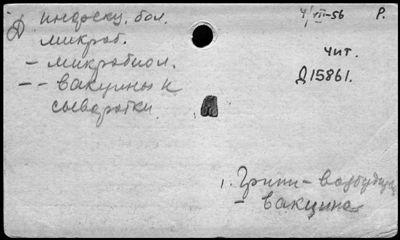 инфекц. бол.
4/VII-56 Р.
микроб.
чит.
- микробиол.
Д15861.
- - вакцины и
сыворотки.
1. Грипп - возбудит
- вакцина